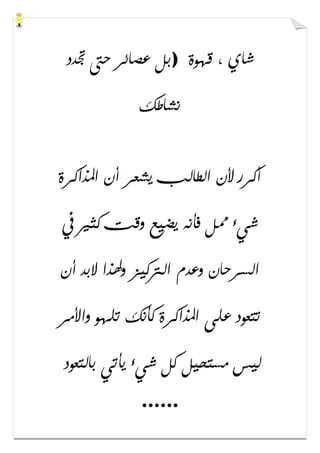 شاي ، قهوة (بل عصائر حتى تجدد
نشاطك
أكرر لأن الطالب يشعر أن المذاكرة
شيء ممل فأنه يضيع وقت كثير في
السرحان وعدم التركيز ولهذا لابد أن
تتعود على المذاكرة كأنك تلهو والأمر
ليس مستحيل كل شيء يأتي بالتعود
......